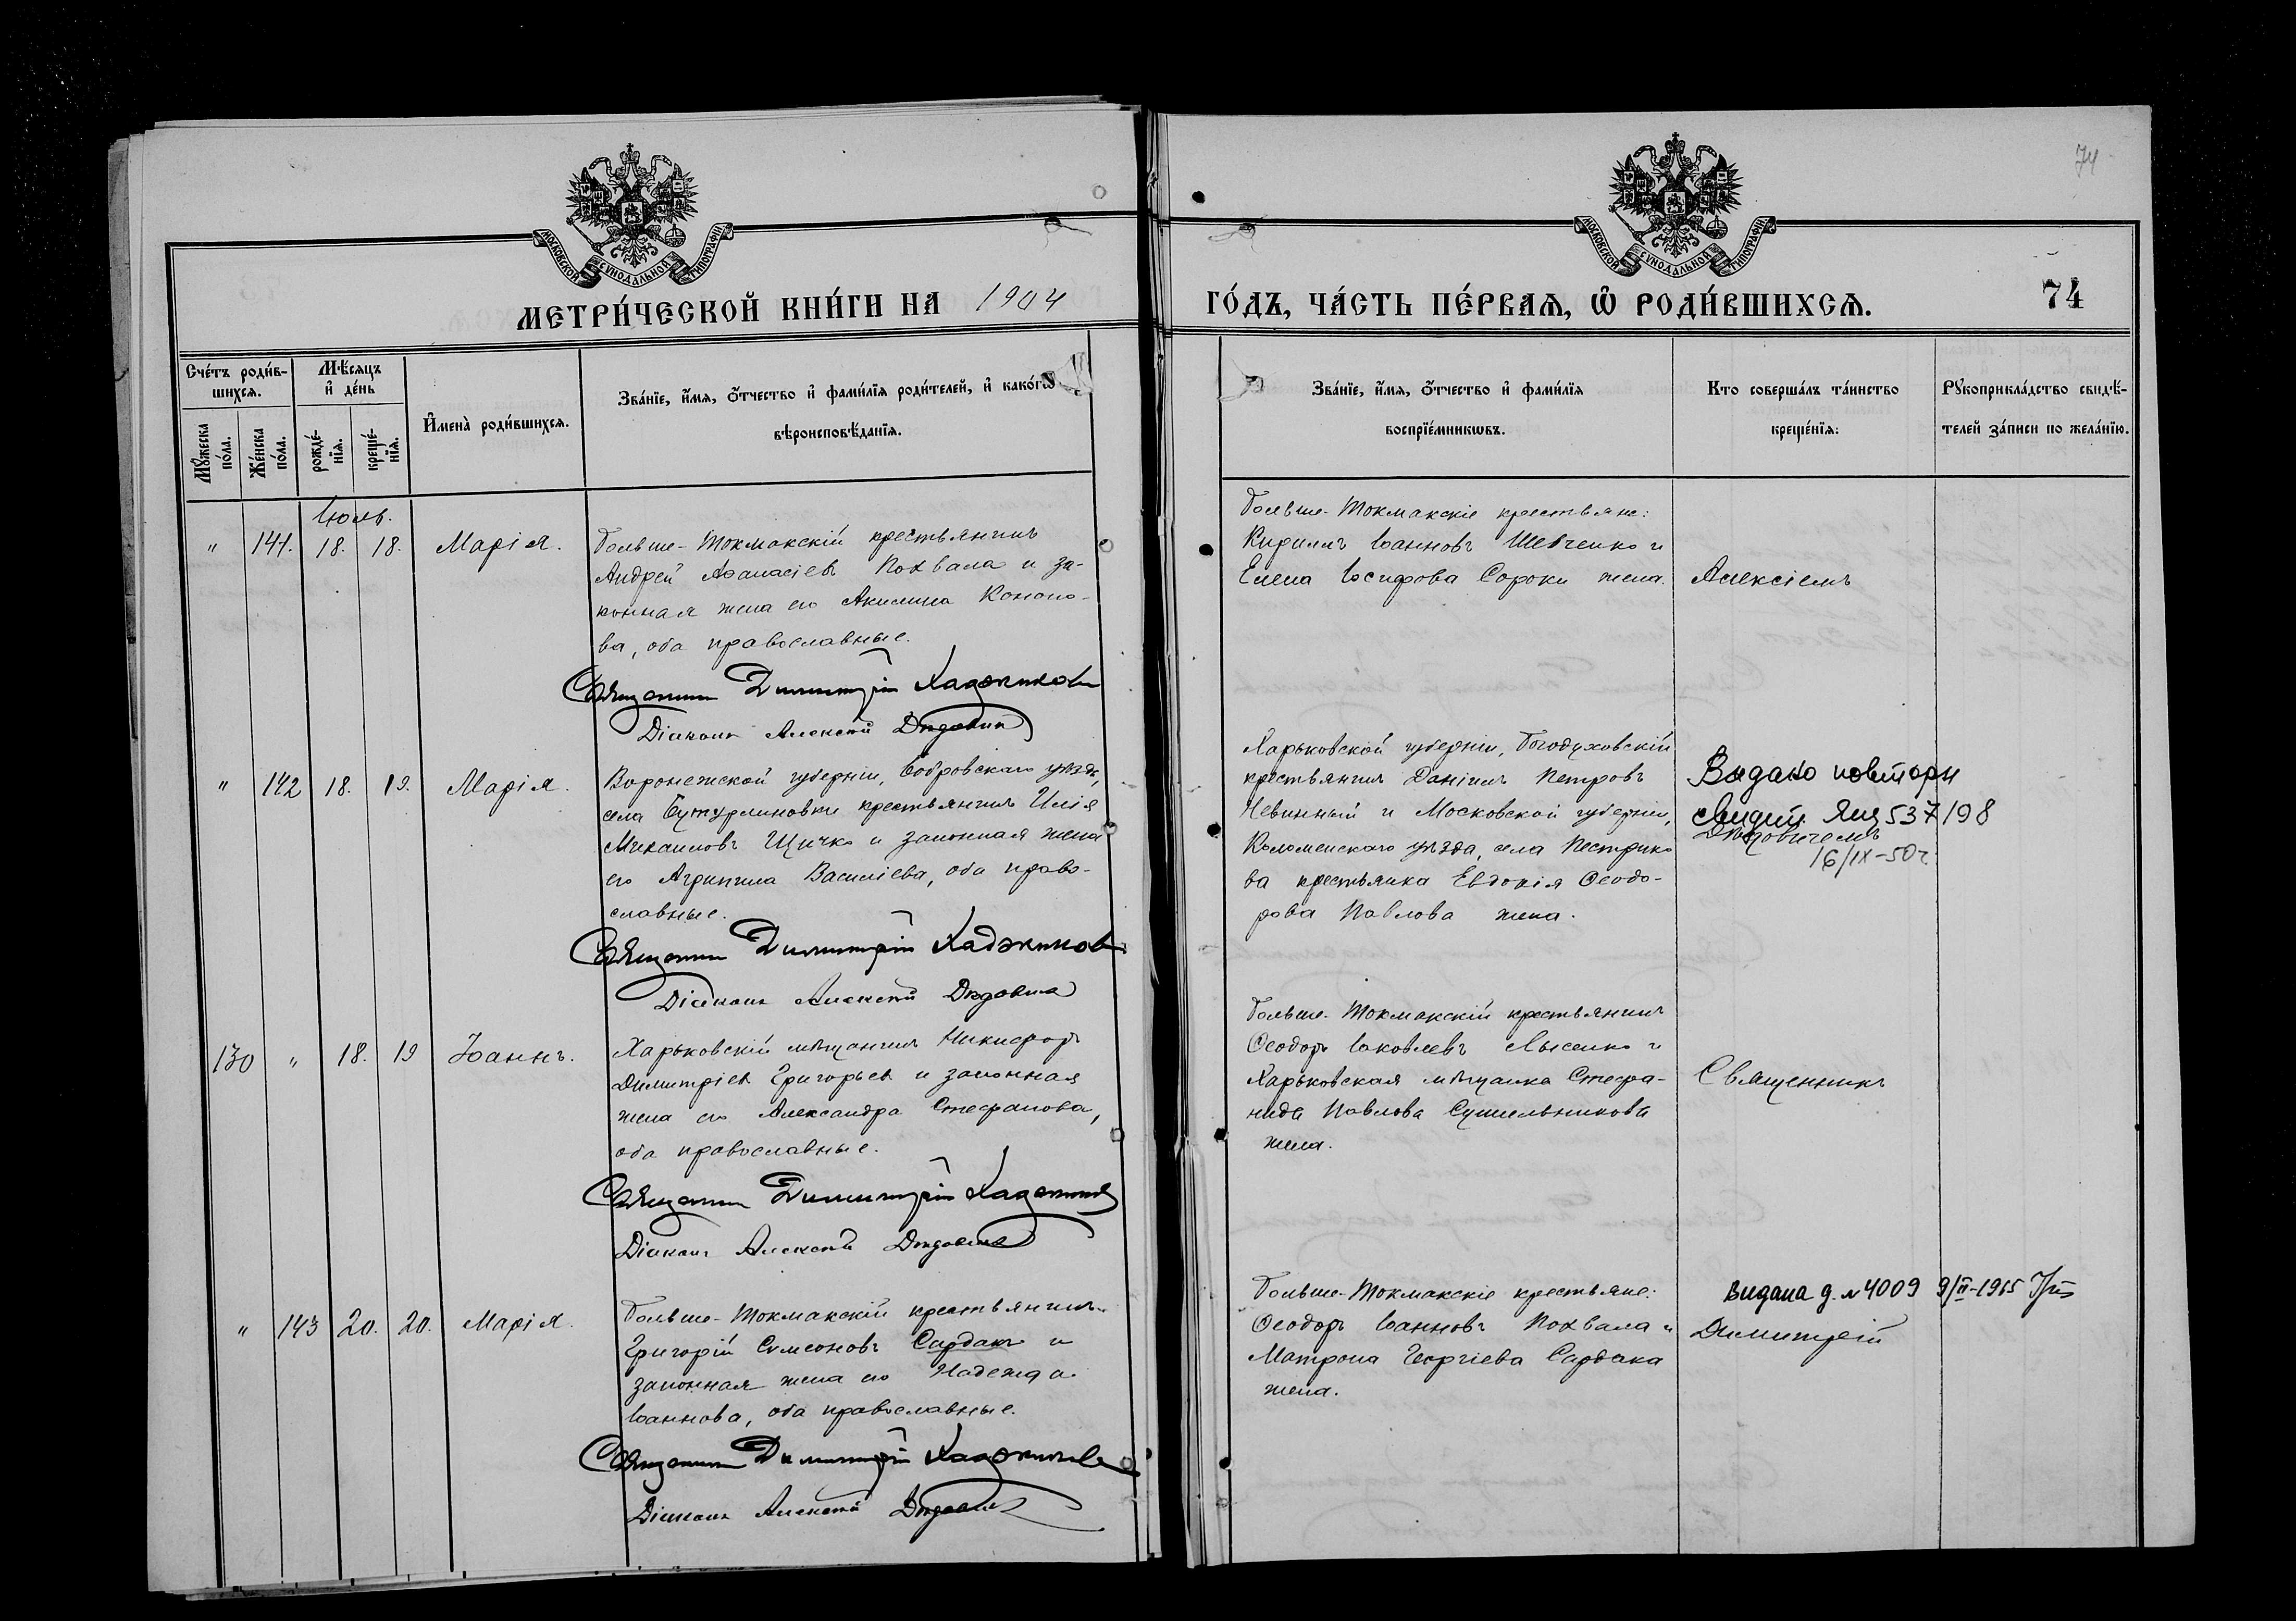 74
МОСКОВСКОЙ СѴНОДАЛЬНОЙ ТИПОГРАФІИ
МОСКОВСКОЙ СѴНОДАЛЬНОЙ ТИПОГРАФІИ
МЕТРИ́ЧЕСКОЙ КНИ́ГИ НА 1904
ГО́ДЪ, ЧА́СТЬ ПЕ́РВАѦ, Ѡ҆ РОДИ́ВШИХСѦ.
74
Сче́тъ роди́в-
шихсѧ.
Мѣ́сѧцъ
и҆ де́нь
Мꙋ́жеска
по́ла.
Же́нска
по́ла.
рожде́-
нїѧ.
креще́-
нїѧ.
И҆мена̀ роди́вшихсѧ.
Зва́нїе, и҆́мѧ, ѻ҆́тчество и҆ фамѝлїѧ роди́телей, и҆ како́гѡ
вѣроисповѣ́данїѧ.
Зва́нїе, и҆́мѧ, ѻ҆́тчество и҆ фамѝлїѧ
воспрїе́мникѡвъ.
Кто соверша́лъ та́инство
креще́нїѧ:
Рꙋкоприкла́дство свидѣ́-
телей за́писи по жела́нїю.
Іюль.
" 141. 18. 18. Марія.
Больше-Токмакскій крестьянинъ
Андрей Аѳанасіевъ Похвала и за-
конная жена его Акилина Кононо-
ва, оба православные.
Священникъ Димитрій Хаджиновъ
Діаконъ Алексѣй Дѣдовичъ
Больше-Токмакскіе крестьяне:
Кириллъ Іоанновъ Шевченко и
Елена Іосифова Сороки жена.
Алексіемъ
" 142 18. 19. Марія.
Воронежской губерніи, Бобровскаго уѣзда,
села Бутурлиновки крестьянинъ Илія
Михаиловъ Щичко и законная жена
его Агрипина Василіева, оба право-
славные.
Священникъ Димитрій Хаджиновъ
Діаконъ Алексѣй Дѣдовичъ
Харьковской губерніи, Богодуховскій
крестьянинъ Даніилъ Петровъ
Невинный и Московской губерніи,
Коломенскаго уѣзда, села Пестрико
ва крестьянка Евдокія Ѳеодо-
рова Павлова жена.
Видано повторн
свидит. 537198
Дѣдовичемъ
16/IX-50г.
130 " 18. 19 Іоаннъ.
Харьковскій мѣщанинъ Никифоръ
Димитріевъ Григорьевъ и законная
жена его Александра Стефанова,
оба православные.
Священникъ Димитрій Хаджиновъ
Діаконъ Алексѣй Дѣдовичъ
Больше-Токмакскій крестьянинъ
Ѳеодоръ Іаковлевъ Лысенко и
Харьковская мѣщанка Стефа-
нида Павлова Сушильникова
жена.
Священникъ
" 143 20. 20. Марія.
Больше-Токмакскій крестьянинъ
Григорій Сѵмеоновъ Сардакъ и
законная жена его Надежда
Іоаннова, оба православные.
Священникъ Димитрій Хаджиновъ
Діаконъ Алексѣй Дѣдовичъ
Больше-Токмакскіе крестьяне:
Ѳеодоръ Іоанновъ Похвала и
Матрона Георгіева Сардака
жена.
Видана д. № 4009 9/II-1965
Димитрій